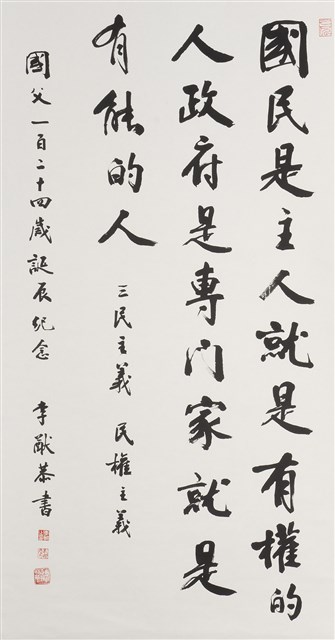 國民是主人就是有權的
人政府是專門家就是
有能的人
三民主義 民權主義
國父一百二十四歲誕辰紀念 李猷恭書